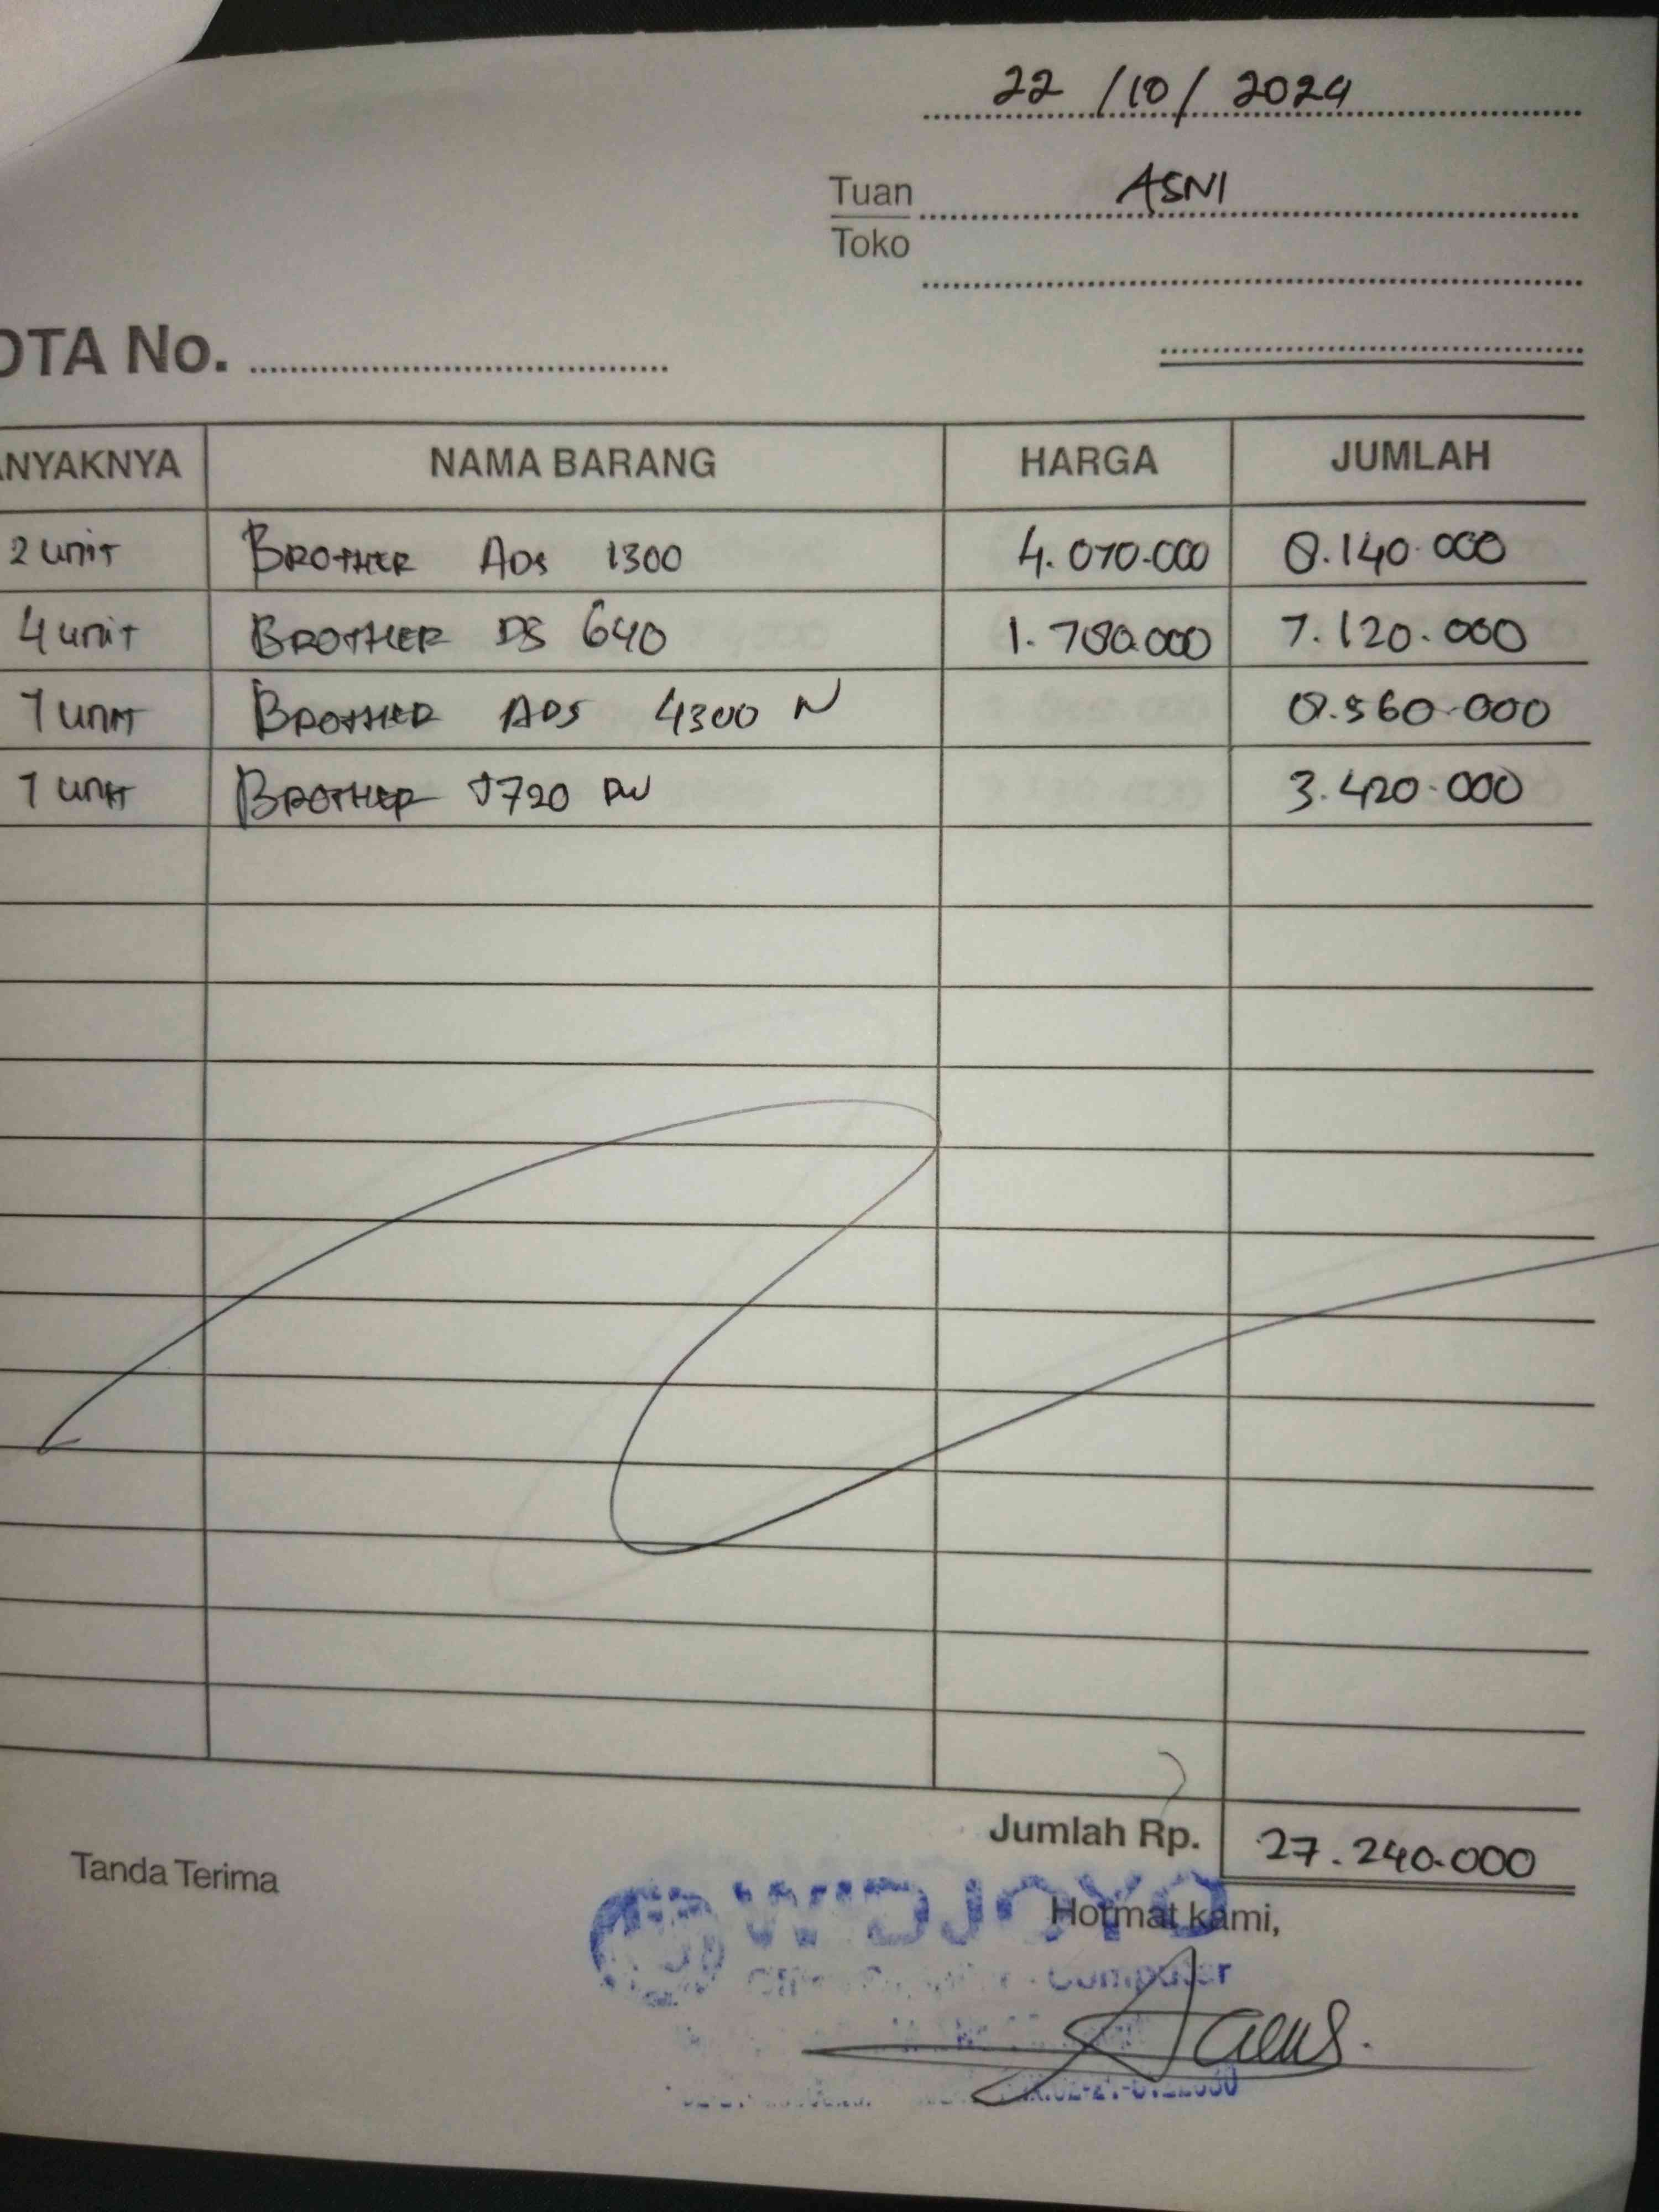 22 /10/ 2024
Tuan ASNI
Toko
OTA No.
ANYAKNYA NAMA BARANG HARGA JUMLAH
2 unit BROTHER ADS 1300 4.070.000 8.140.000
4 unit BROTHER DS 640 1.780.000 7.120.000
1 unit BROTHER ADS 4300 N 8.560.000
1 unit BROTHER J720 DW 3.420.000
Jumlah Rp. 27.240.000
Tanda Terima
Hormat kami,
WIDJOYO
Computer